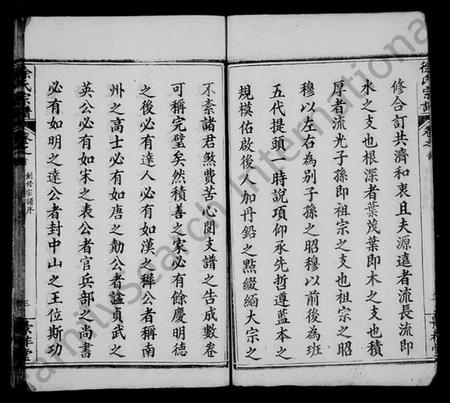 修合訂共濟和衷且夫源遠者流長流即
水之支也根深者葉茂葉即木之支也積
厚者流光子孫即祖宗之支也祖宗之昭
穆以左右為別子孫之昭穆以前後為班
五代提頭一時說項仰承先哲遵藍本之
規模佑啟後人加丹鉛之點綴緬大宗之
不紊諸君煞費苦心閱支譜之告成數卷
可稱完璧矣然積善之家必有餘慶明德
之後必有達人必有如漢之穉公者稱南
州之高士必有如唐之勣公者諡貞武之
英公必有如宋之表公者官兵部之尚書
必有如明之達公者封中山之王位斯功
徐氏宗譜
卷之
創修宗譜序
徐氏宗譜
FamilySearch International